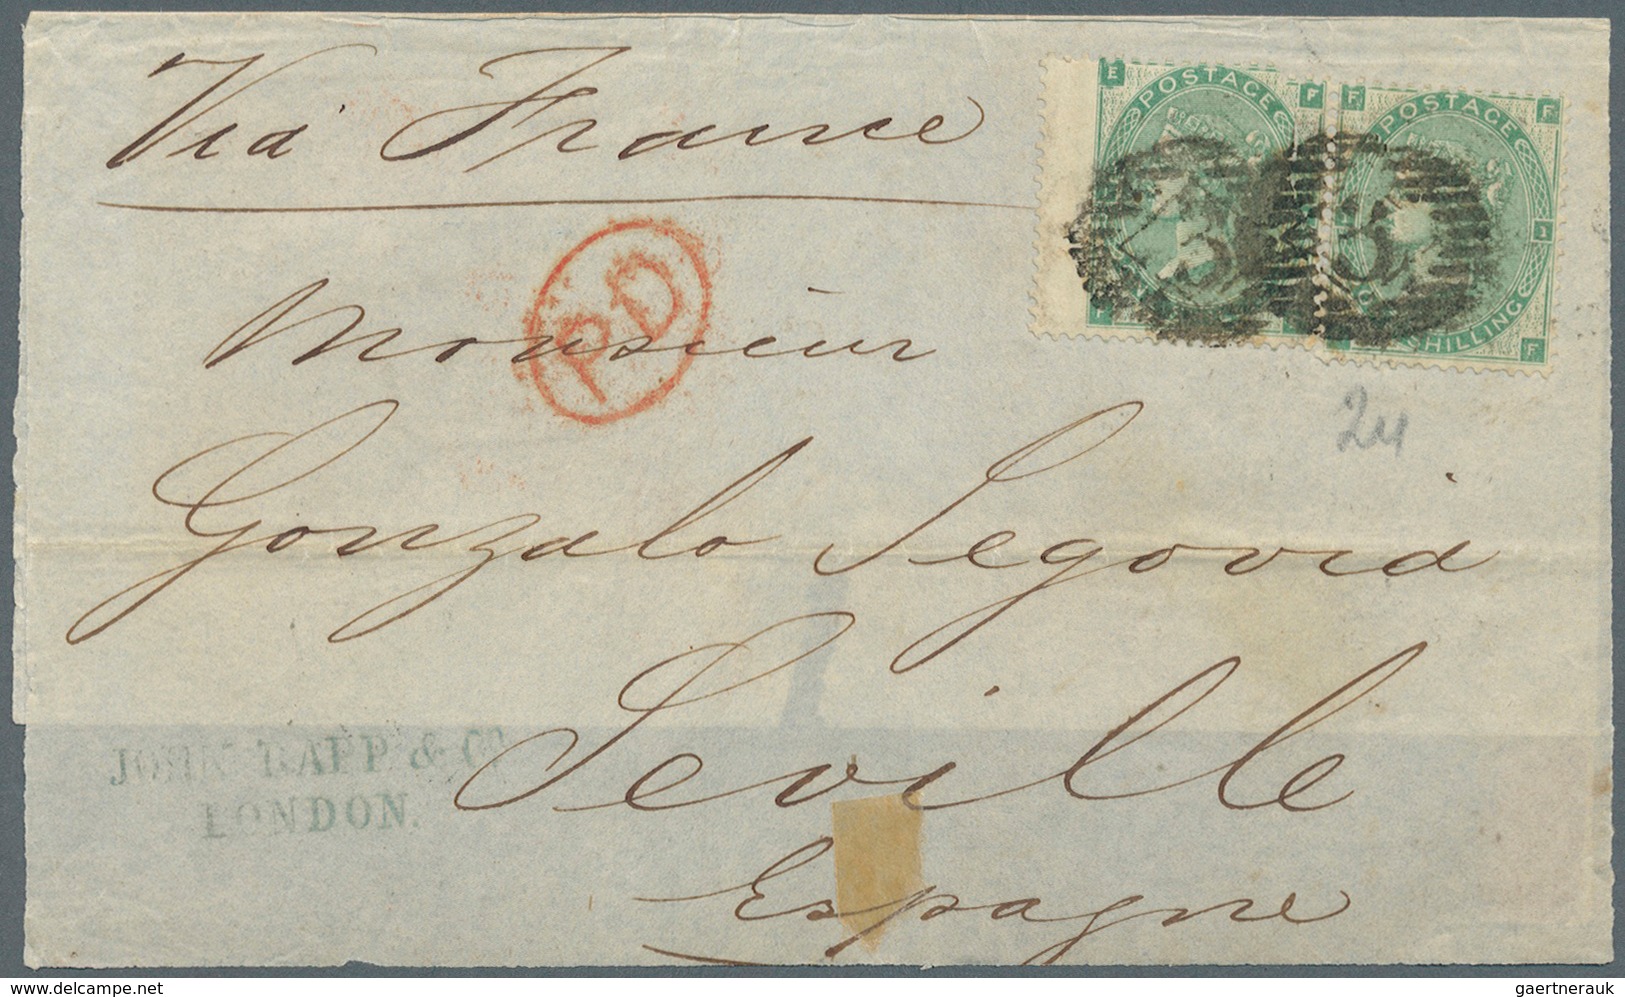 Via France
E POSTAGE F
F POSTAGE F
1
F
SHILLING F
PD
Monsieur
24
Gonzalo Segovia
Seville
JOHN RAPP & Co
LONDON.
Espagne
© Delcampe.net
gaertnerauk